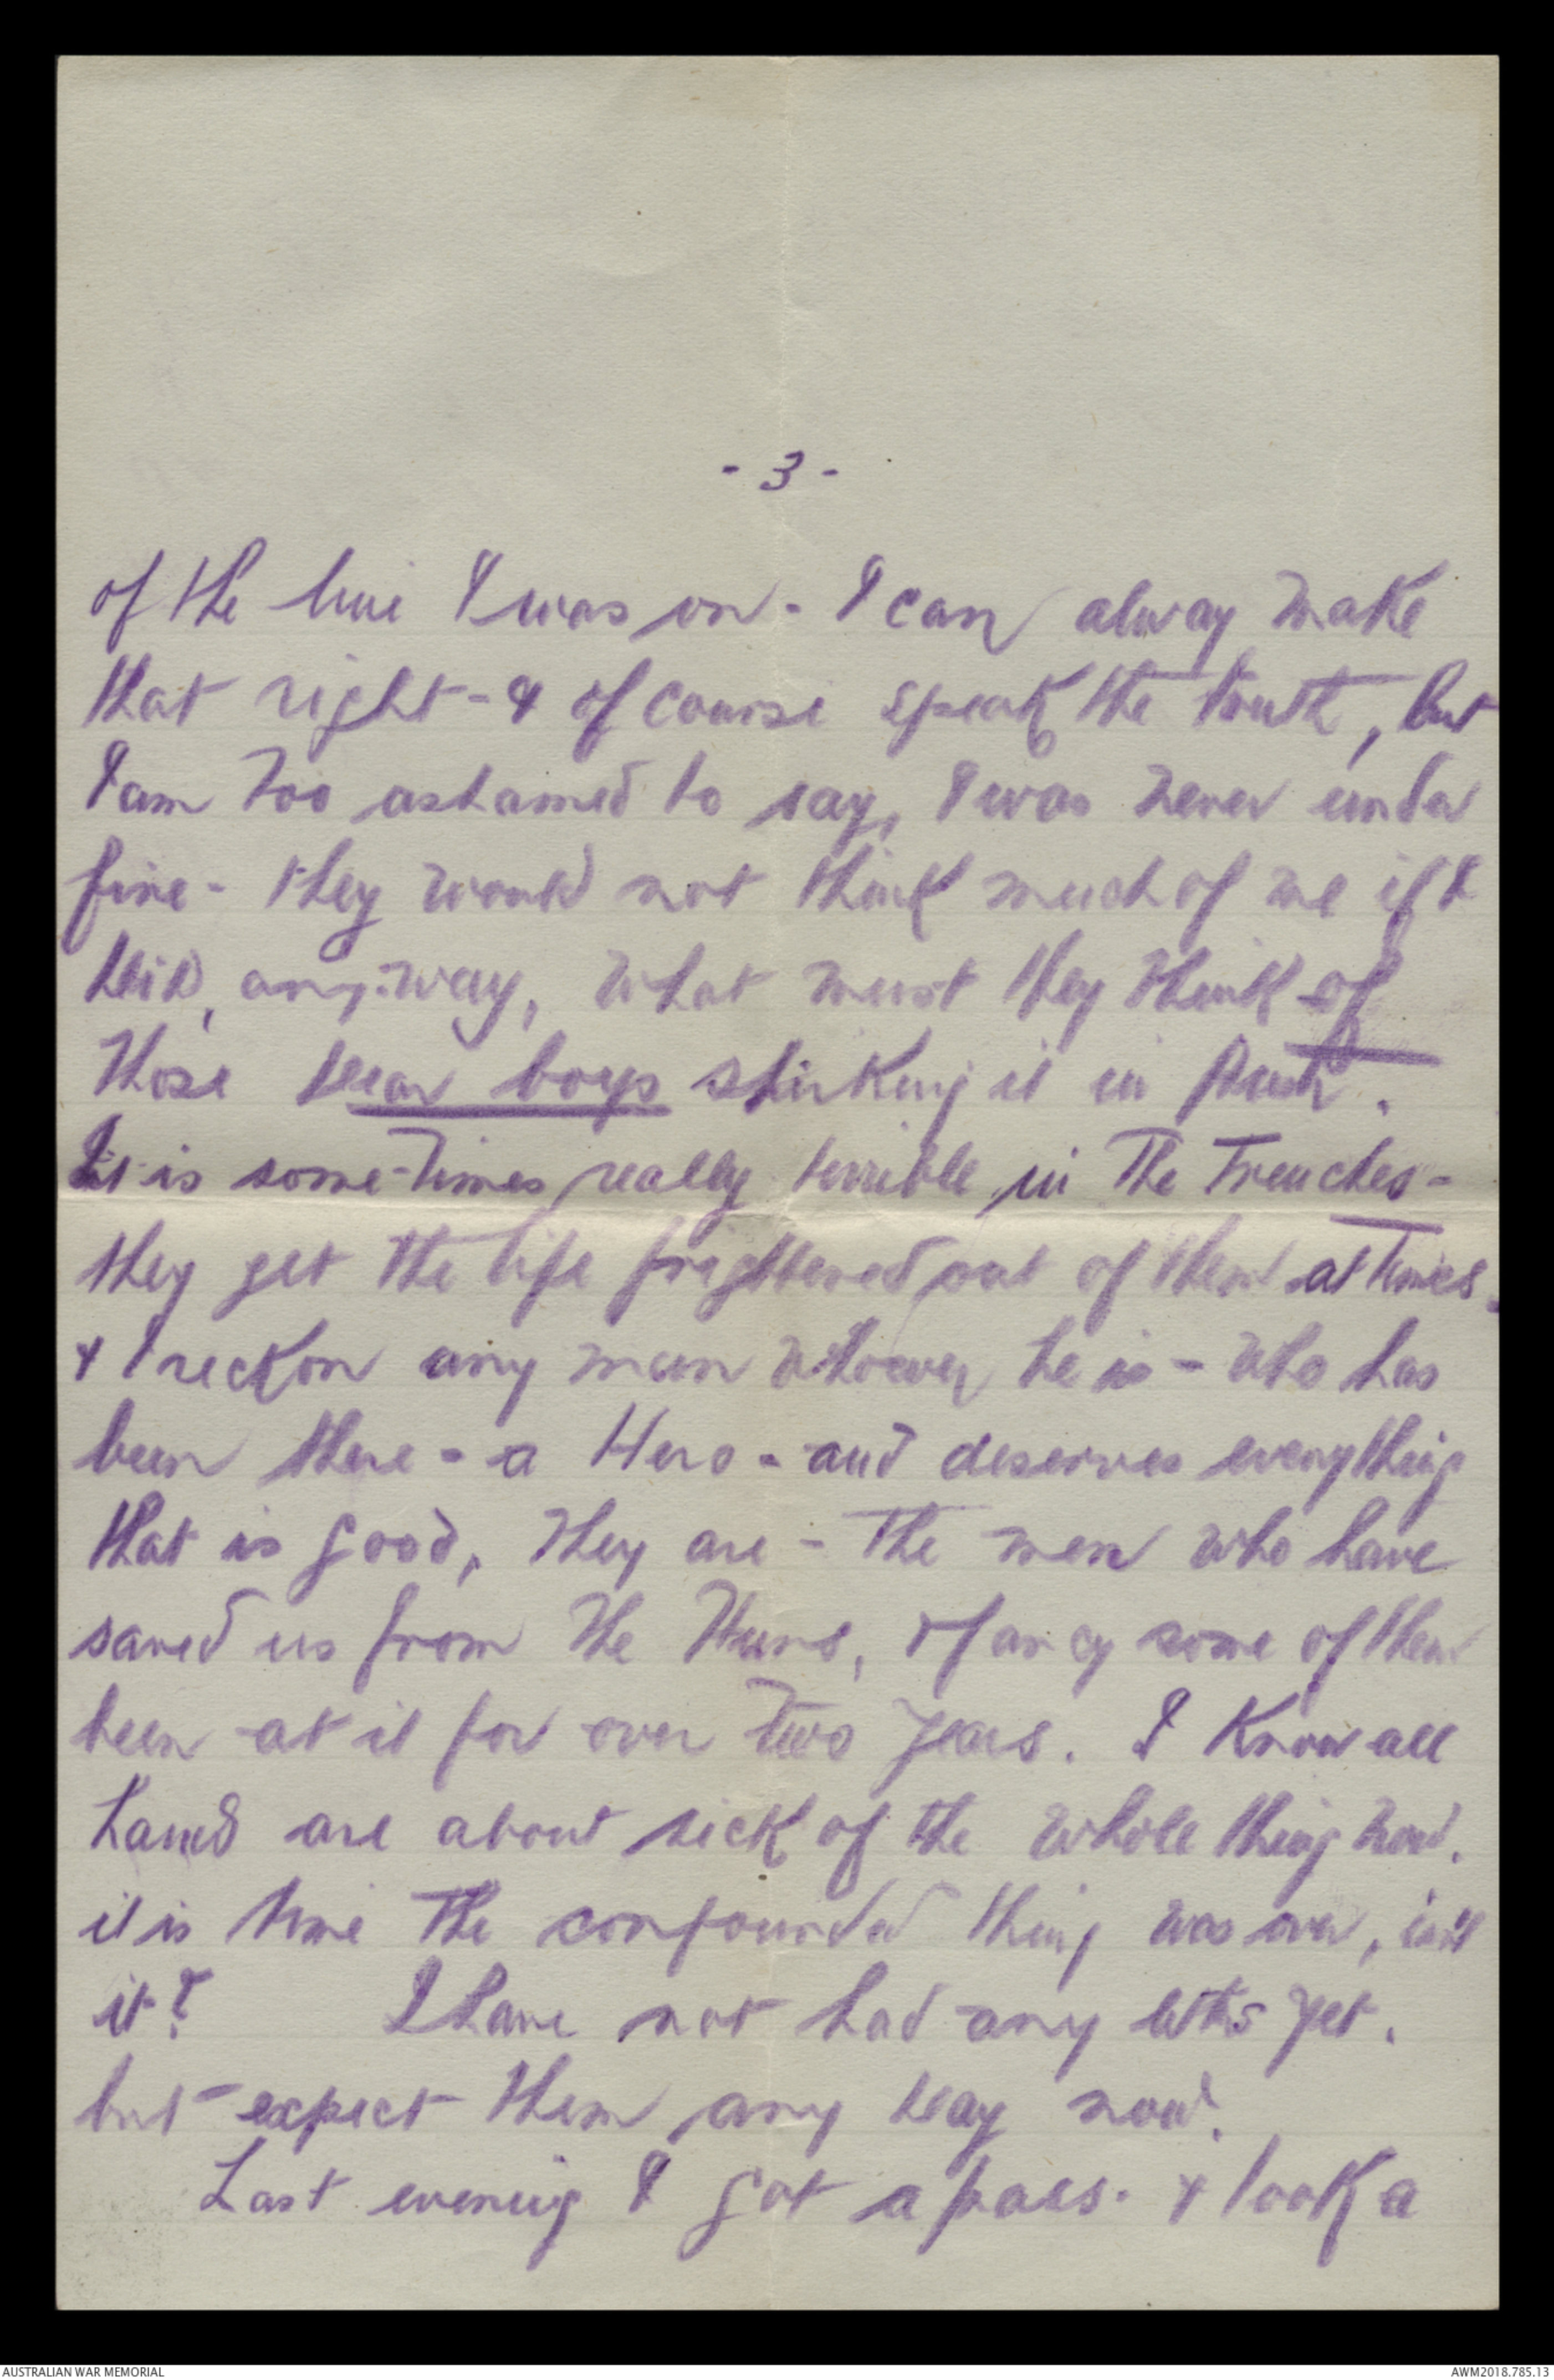 - 3 -
of the line I was on - I can alway make
that right - & of course speak the truth, but
I am too ashamed to say, I was never under
fire - they would not think much of me if I
did, any-way, what must they think of
those dear boys shirking it in Aust.
It is some-times really terrible in the Trenches -
they get the life frightened out of them at times.
& I reckon any man whoever he is - who has
been there - a Hero - and deserves everything
that is good, they are - the men who have
saved us from the Huns, & fancy some of them
been at it for over two years. I know all
hands are about sick of the whole thing now.
it is time the confounded thing was over, isn't
it? I have not had any letts yet.
but expect them any day now.
Last evening I got a pass. & took a
AUSTRALIAN WAR MEMORIAL
AWM2018.785.13